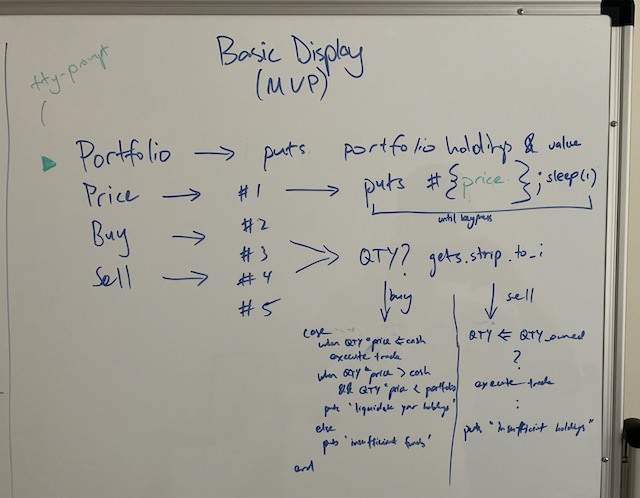 Basic Display
(MVP)
tty-prompt
(
Portfolio → puts portfolio holdings & value
Price → #1 → puts #{price}; sleep(1)
until keypress
Buy → #2
#3
QTY? gets.strip.to_i
Sell → #4
#5
buy
sell
case
when QTY * price <= cash
execute trade
when QTY * price > cash
&& QTY * price < portfolio
puts "liquidate your holdings"
else
puts "insufficient funds"
end
QTY <= QTY_owned
?
execute trade
:
puts "insufficient holdings"